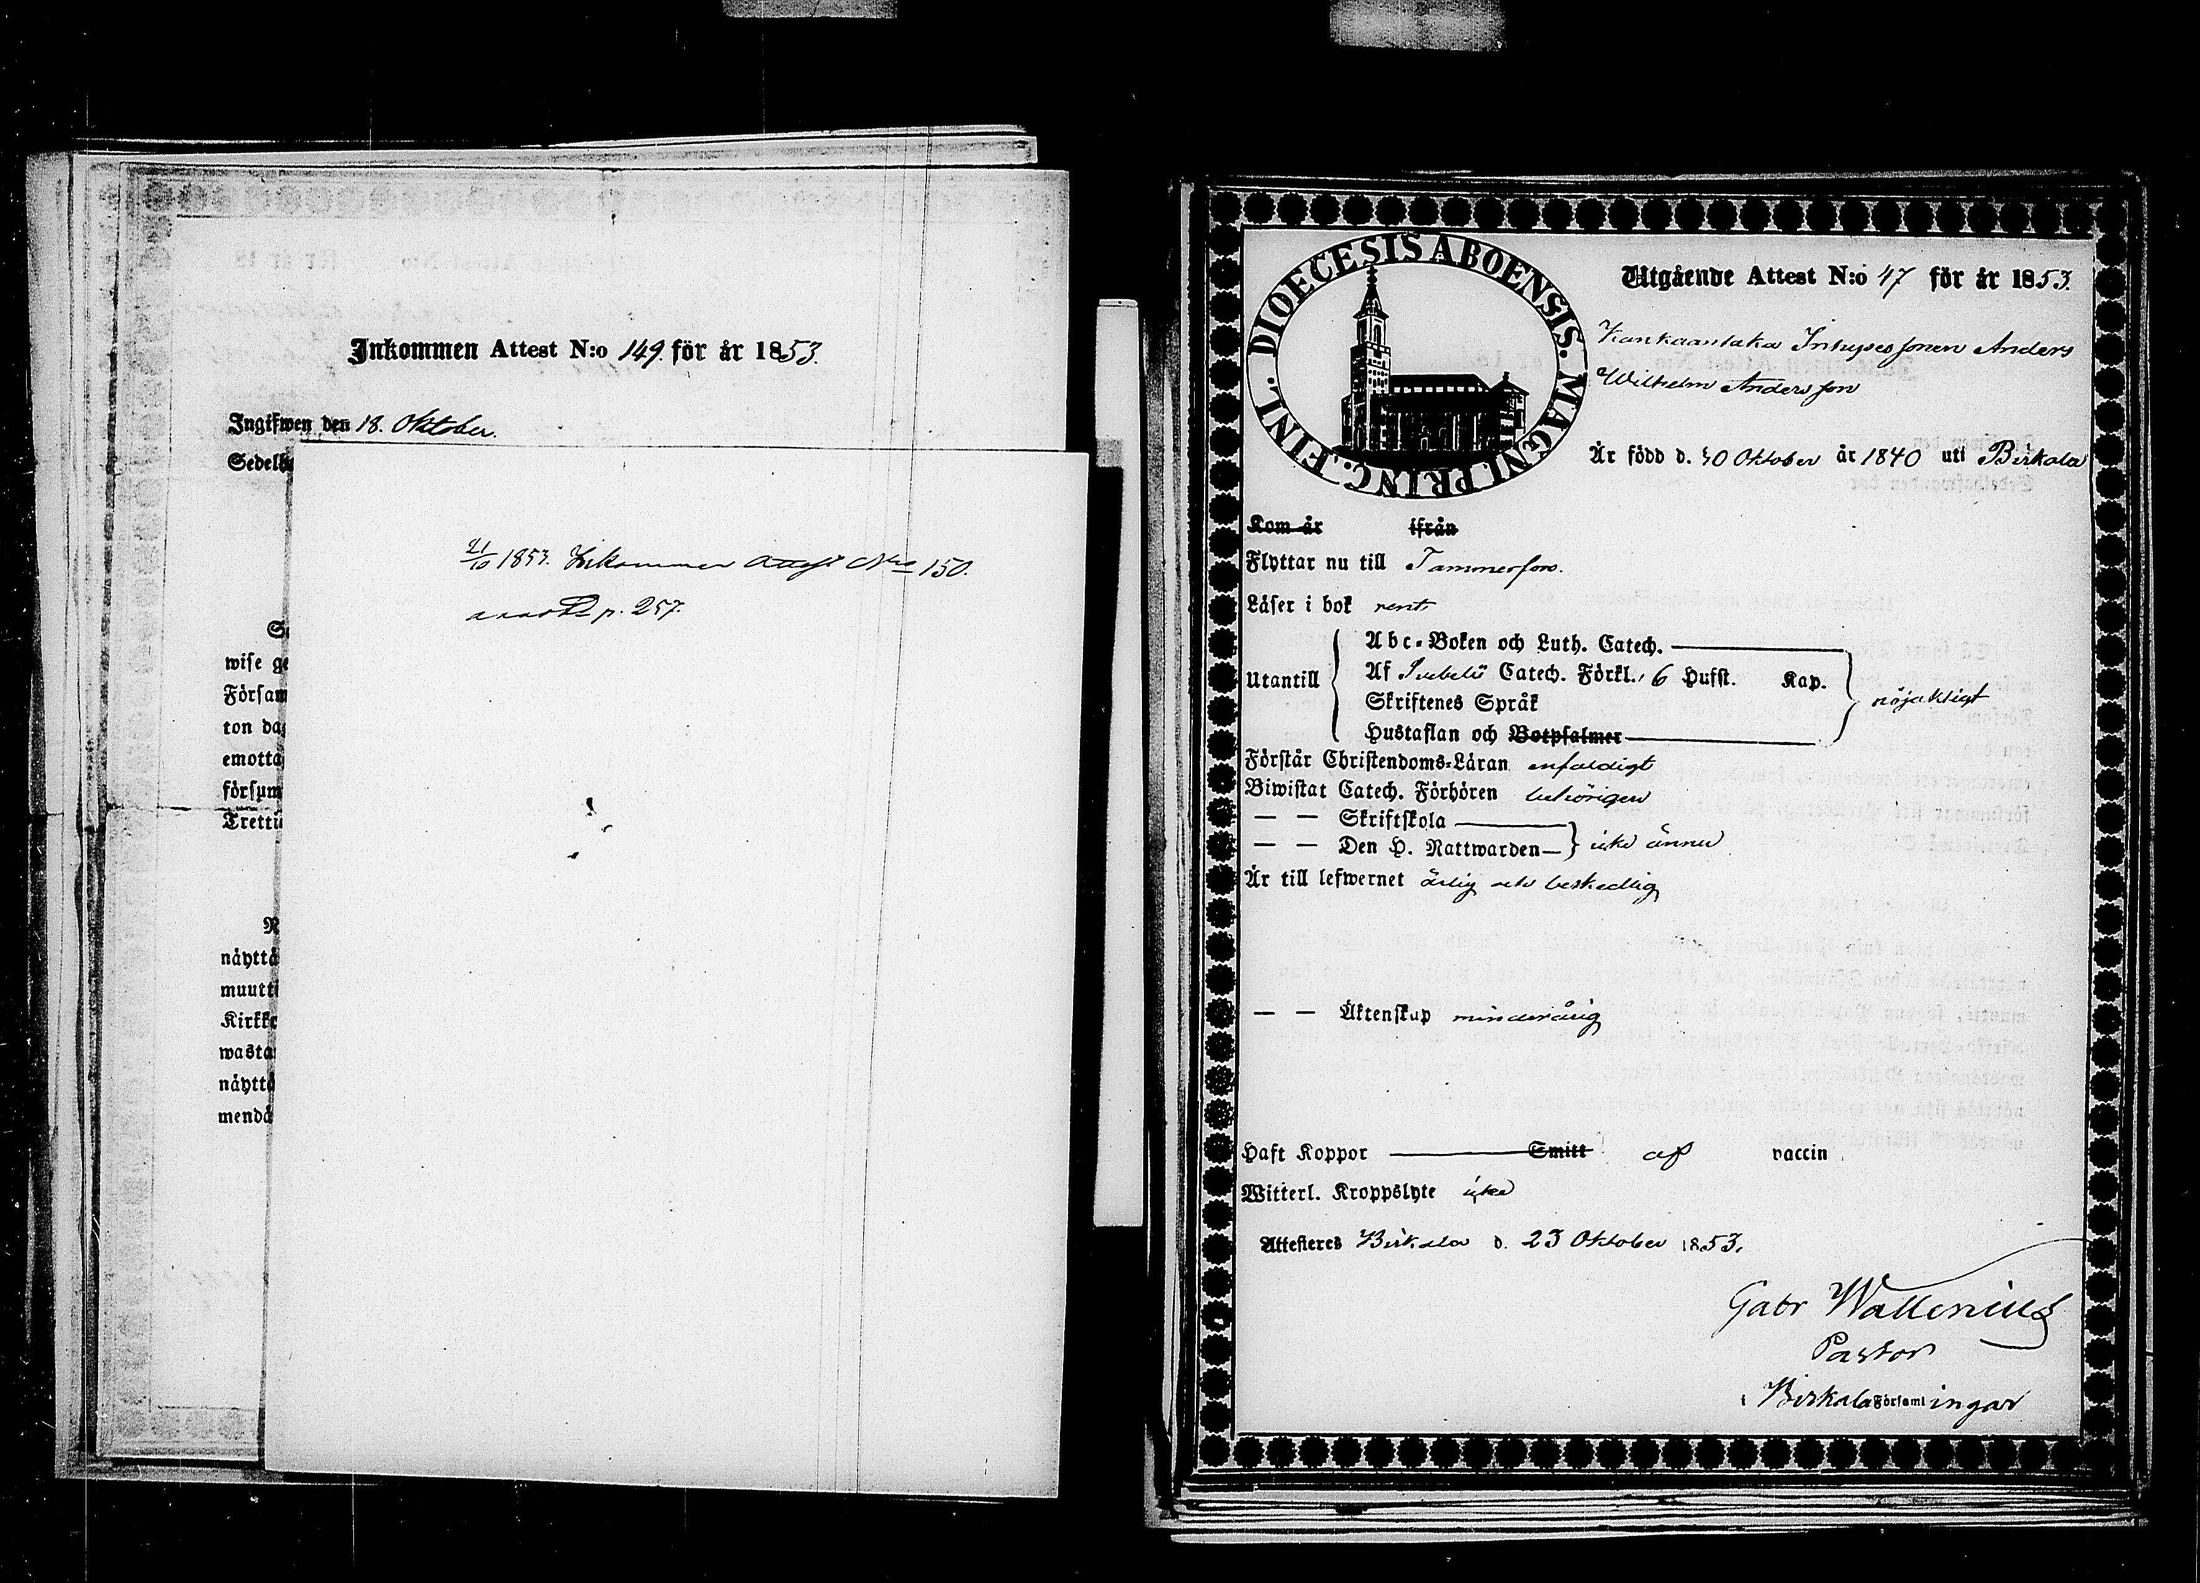 Inkommen Attest N:o 149. för år 1853.
Ingifwen den 18. Oktober.
Sedelh
21/10 1853. Inkommen Attest N:o 150.
p. 257.
wise ge
Församl
ton da
emotta
försum
Tretti
näyttä
muutt
Kirkk
wasta
näyttä
mendä
DIOECESIS ABOENSIS. MAGNI. PRINC. FINL.
Utgående Attest N:o 47 för år 1853.
Kankaantaka Inhysessonen Anders
Wilhelm Andersson
Är född d. 30 Oktober år 1840 uti Birkala
Kom år ifrån
Flyttar nu till Tammerfors.
Läser i bok rent
Utantill
Abc-Boken och Luth. Catech.
Af Svebelii Catech. Förkl., 6 Hufst. Kap.
Skriftenes Språk
Hustaflan och Botpsalmer
nöjaktigt
Förstår Christendoms-Läran enfaldigt
Biwistat Catech. Förhören behörigen
— — Skriftskola
— — Den H. Nattwarden icke ännu
Är till lefwernet ärlig och beskedlig
— — Äktenskap minderårig
Haft Koppor Smitt af vaccin
Witterl. Kroppslyte icke
Attesteres Birkala d. 23 Oktober 1853.
Gabr Wallenius
Pastor
i Birkala Församlingar